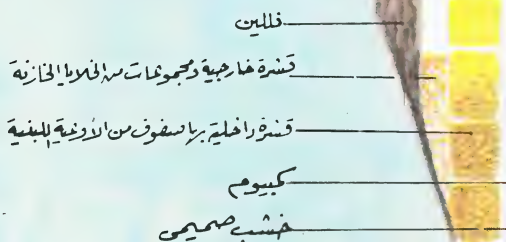 فللين
قشرة خارجية ومجموعات من الخلايا الخازنة
قشرة داخلية بها صفوف من الأوعية اللبنية
كمبيوم
خشب صميمى